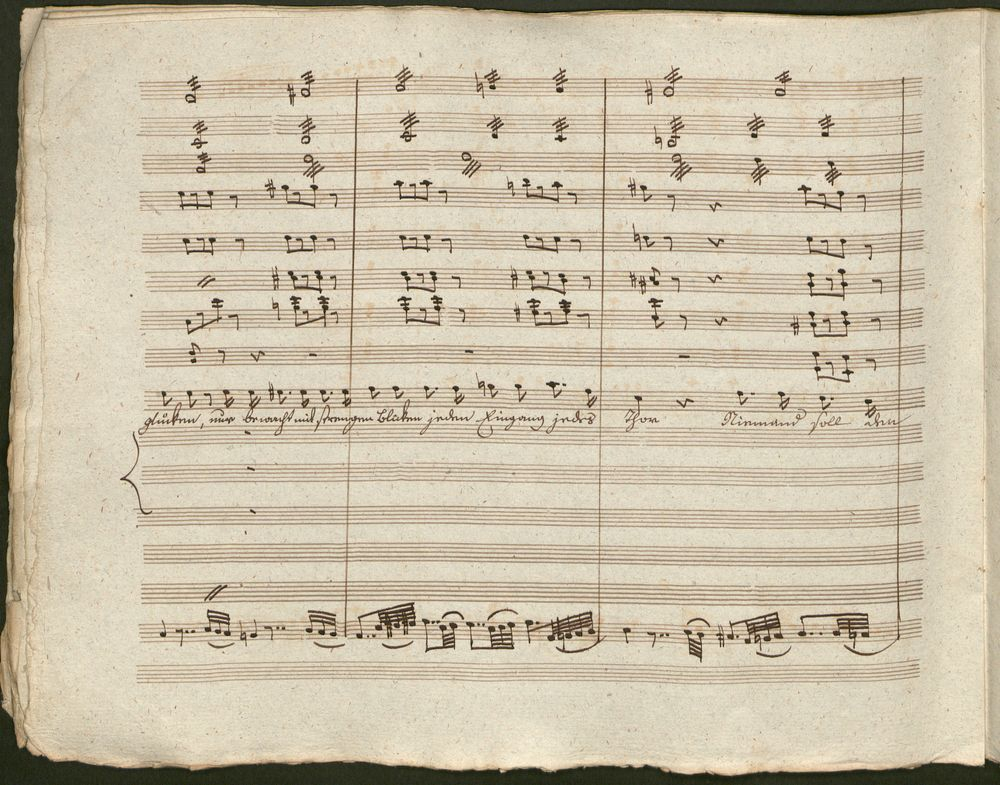 glücken, nur bewacht mit strengen Blicken jeden Eingang jedes Thor Niemand soll den